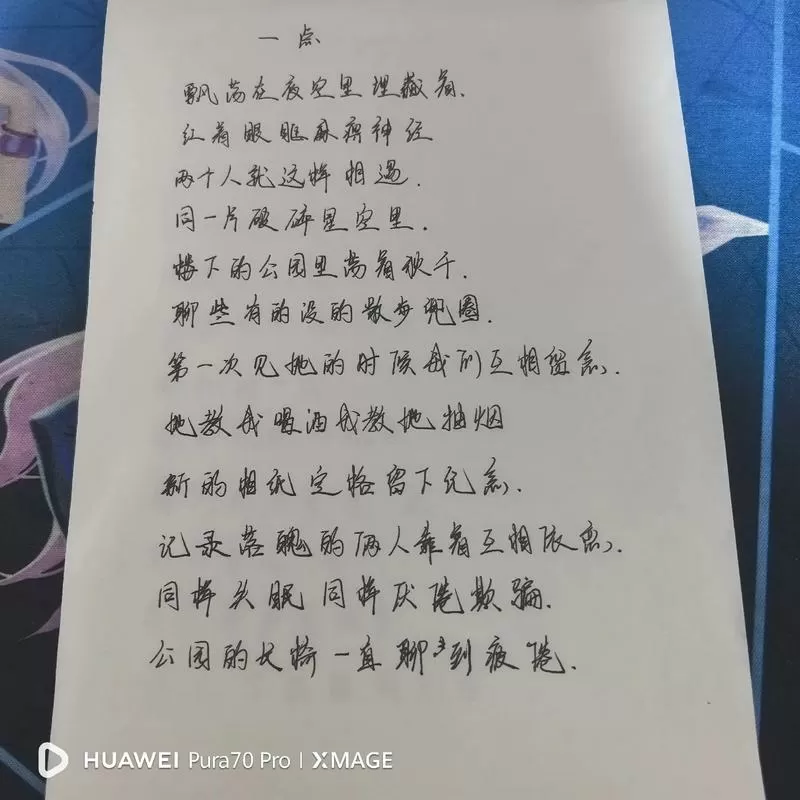 一点
飘荡在夜空里埋藏着.
红着眼眶麻痹神经
两个人就这样相遇.
同一片破碎星空里.
楼下的公园里荡着秋千.
聊些有的没的散步兜圈.
第一次见她的时候我们互相留念.
她教我喝酒我教她抽烟
新的相纸定格留下纪念.
记录落魄的俩人靠着互相依恋.
同样失眠 同样厌倦欺骗.
公园的长椅一直聊到疲倦.
HUAWEI Pura70 Pro | XMAGE